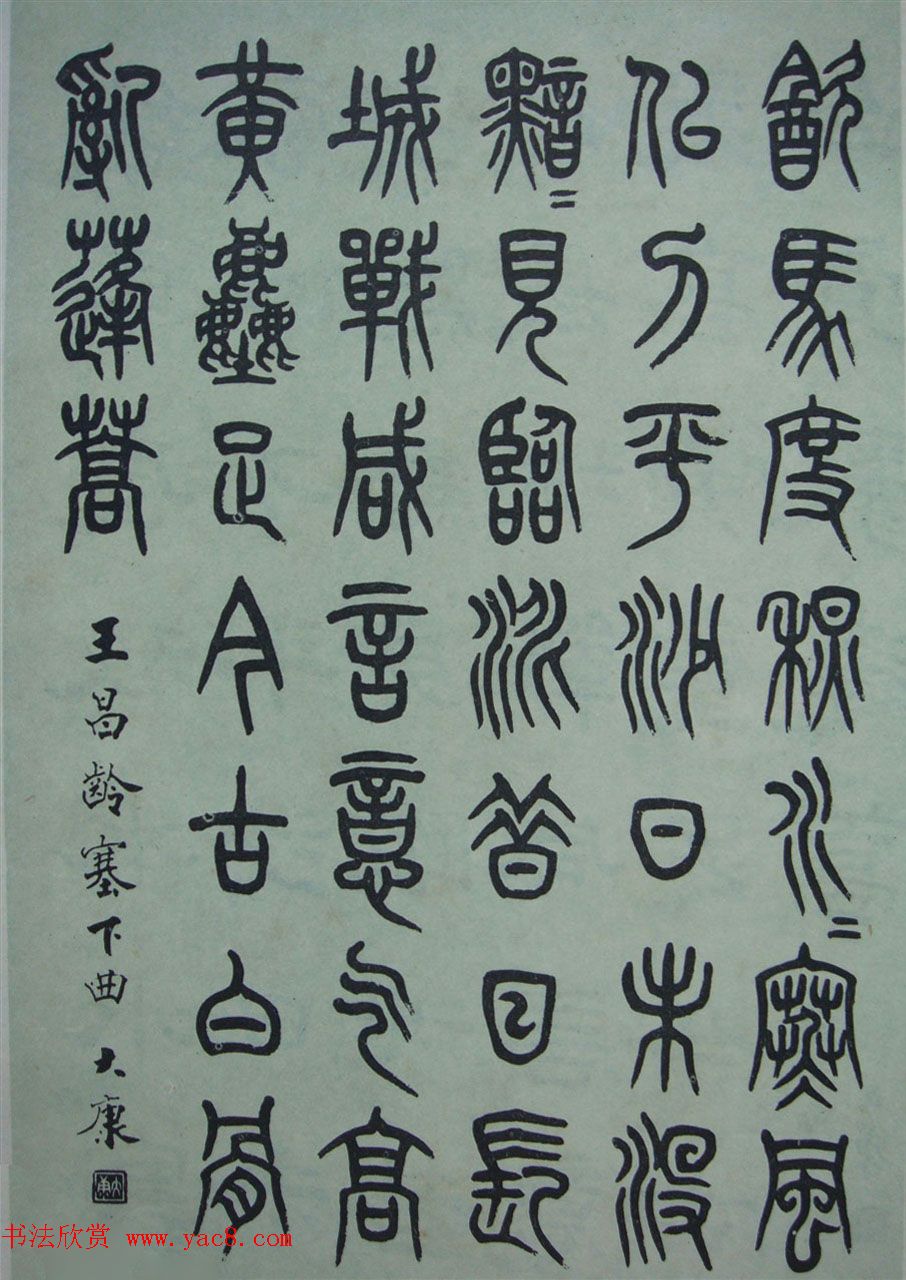 飲馬度秋水〻寒風
似刀平沙日未没
黯〻見臨洮昔日長
城戰咸言意气高
黃塵足今古白骨
亂蓬蒿
王昌齡塞下曲 大康
书法欣赏 www.yac8.com